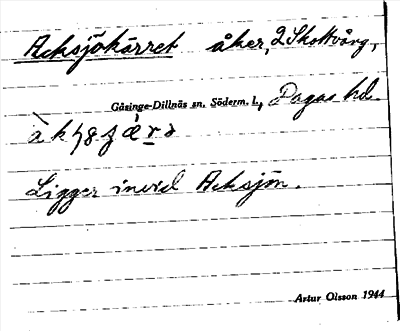 Acksjökärret åker, 2 Skottvång,
Gåsinge-Dillnäs sn. Söderm. l., Dagas hd.
Ligger invid Acksjön.
Artur Olsson 1944